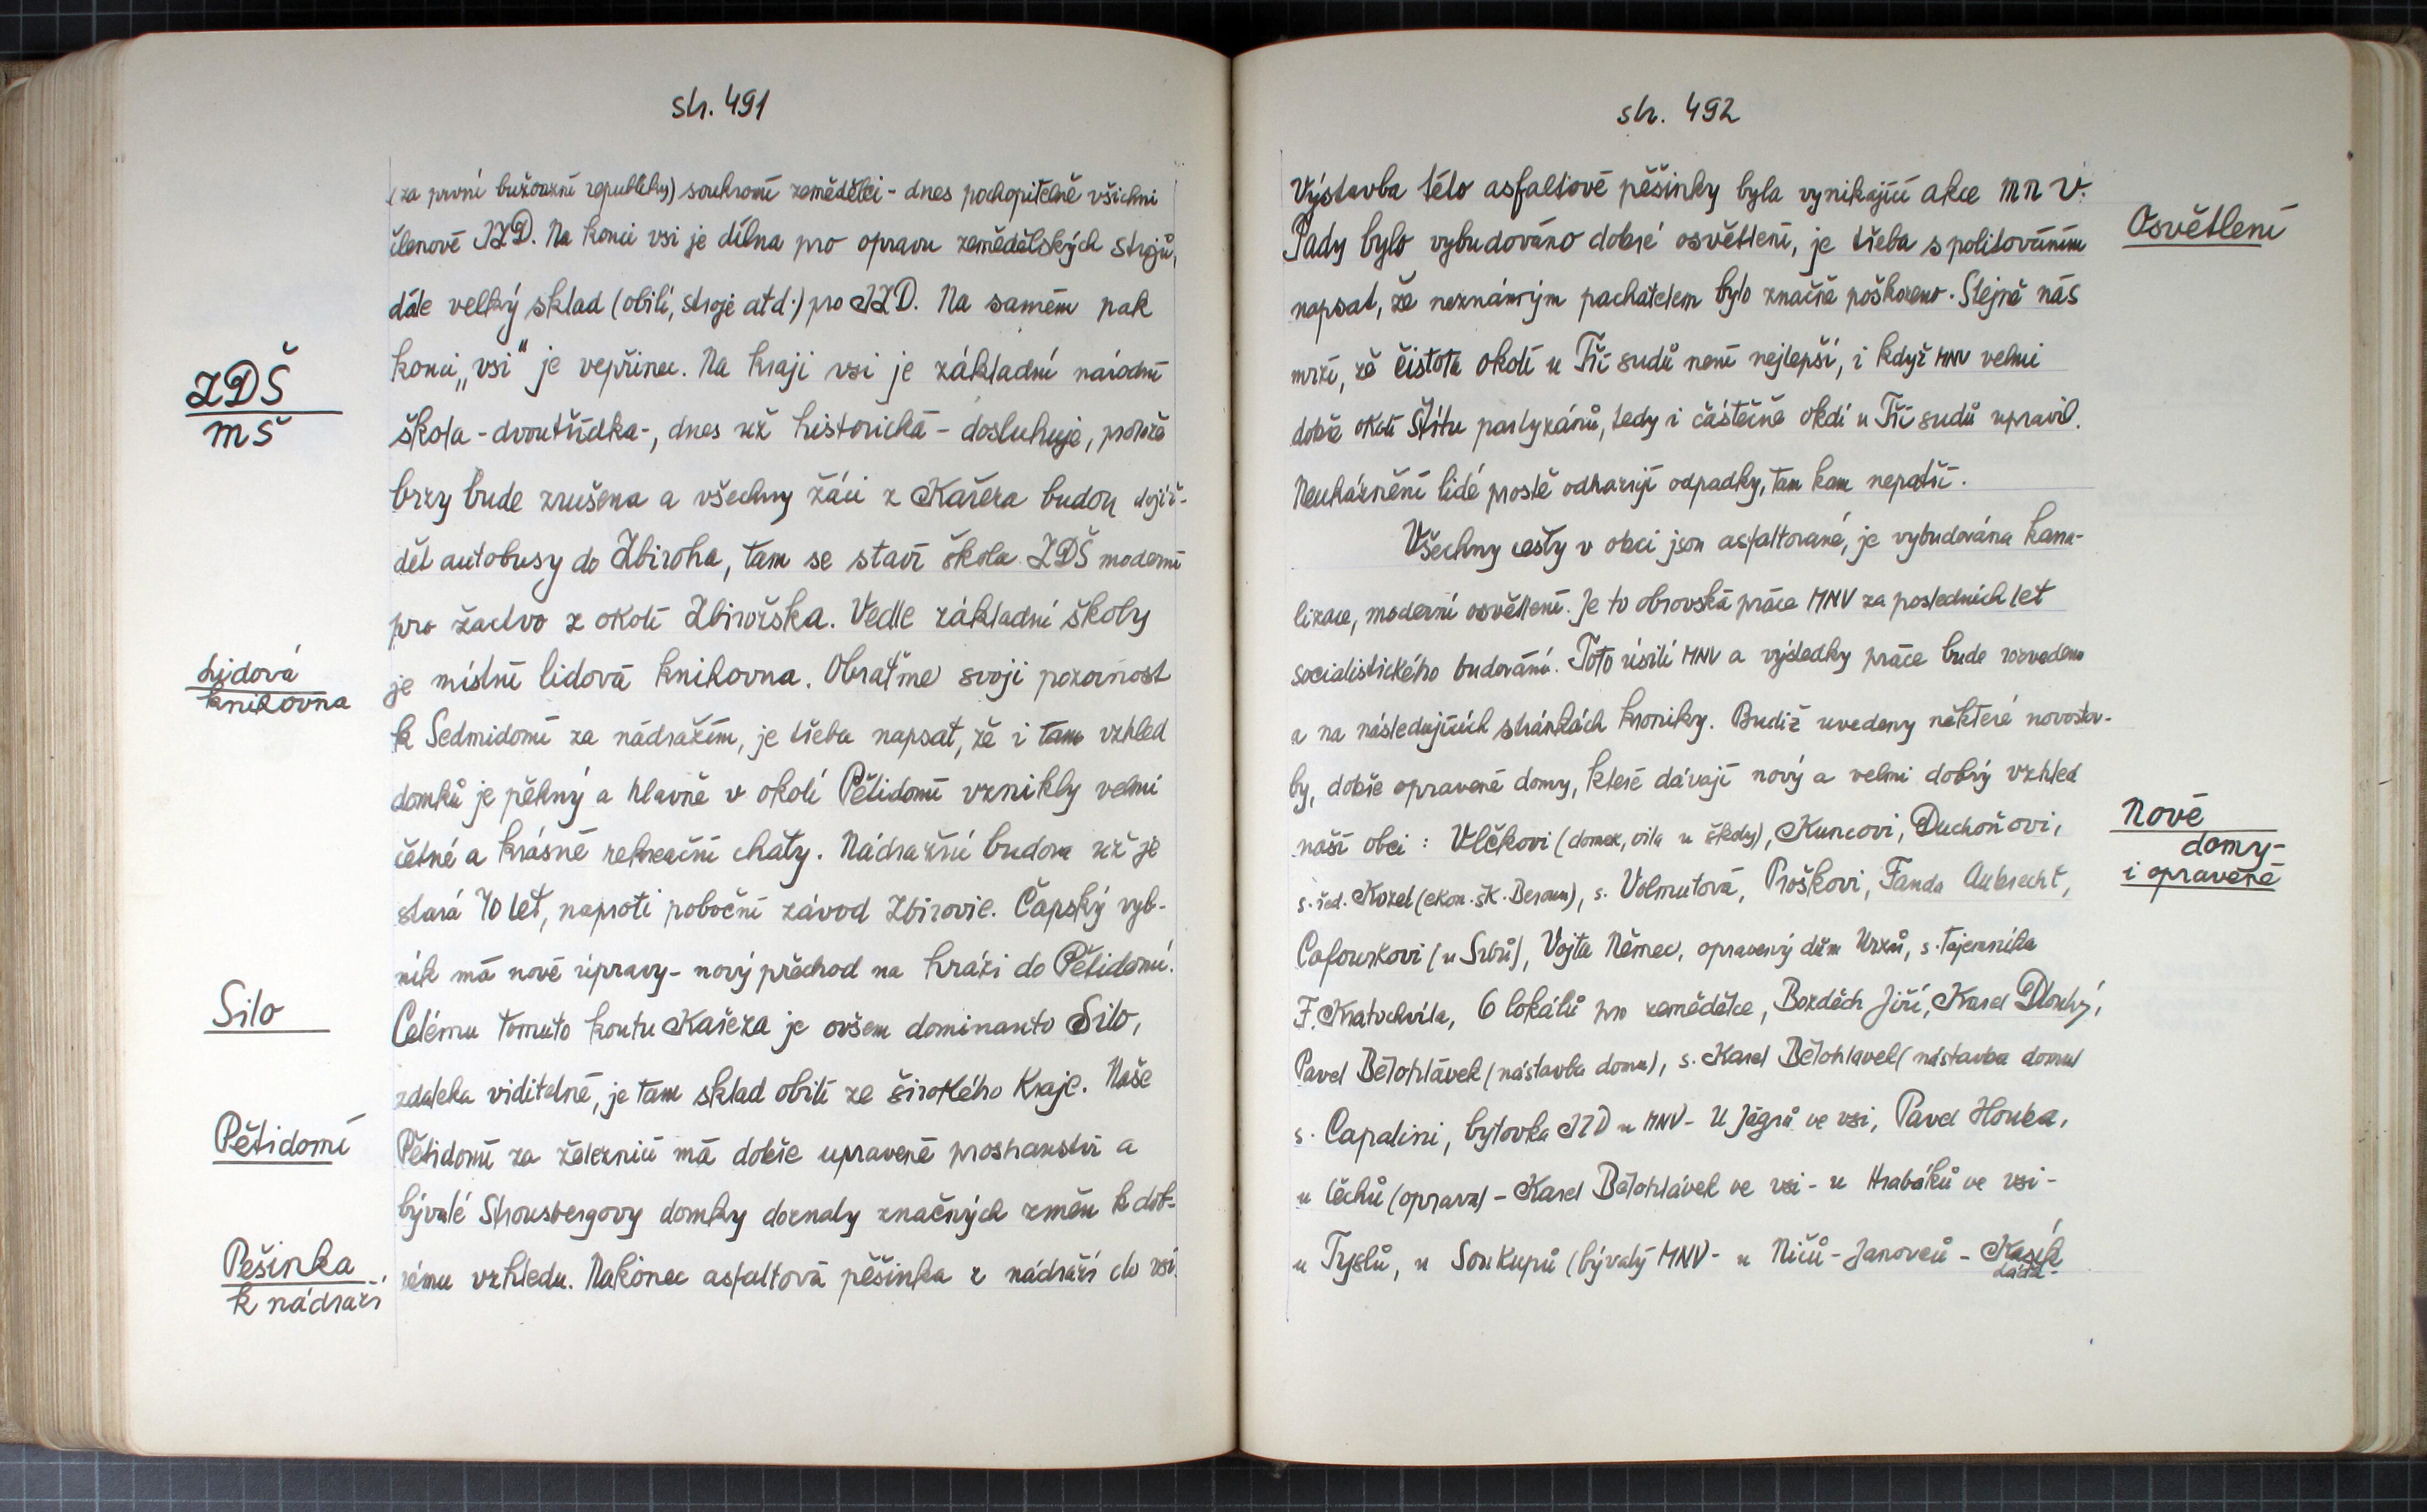 str. 491
(za první buržoazní republiky) soukromí zemědělci - dnes pochopitelně všichni
členové JZD. Na konci vsi je dílna pro opravu zemědělských strojů,
dále velký sklad (obilí, stroje atd.) pro JZD. Na samém pak
konci „vsi" je vepřinec. Na kraji vsi je základní národní
ZDŠ
MŠ
škola - dvoutřídka -, dnes už historická - dosluhuje, protože
brzy bude zrušena a všechny žáci z Kařeza budou dojíž-
dět autobusy do Zbiroha, tam se staví škola ZDŠ moderní
pro žactvo z okolí Zbirožska. Vedle základní školy
Lidová
knihovna
je místní lidová knihovna. Obraťme svoji pozornost
k Sedmidomí za nádražím, je třeba napsat, že i tam vzhled
domků je pěkný a hlavně v okolí Pětidomí vznikly velmi
četné a krásné rekreační chaty. Nádražní budova už je
stará 70 let, naproti poboční závod Zbirovie. Čápský ryb-
ník má nové úpravy - nový přechod na hrázi do Pětidomí.
Silo
Celému tomuto koutu Kařeza je ovšem dominanto Silo,
zdaleka viditelné, je tam sklad obilí ze širokého Kraje. Naše
Pětidomí
Pětidomí za železnicí má dobře upravené prostranství a
bývalé Strousbergovy domky doznaly značných změn k dob-
Pěšinka
k nádraží
rému vzhledu. Nakonec asfaltová pěšinka z nádraží do vsi.
str. 492
Výstavba této asfaltové pěšinky byla vynikající akce MNV.
Osvětlení
Tady bylo vybudováno dobré osvětlení, je třeba s politováním
napsat, že neznámým pachatelem bylo značně poškozeno. Stejně nás
mrzí, že čistota okolí u Tří sudů není nejlepší, i když MNV velmi
dobře okolí Štítu partyzánů, tedy i částečně okolí u Tří sudů upravil.
Neukáznění lidé prostě odhazují odpadky, tam kam nepatří.
Všechny cesty v obci jsou asfaltované, je vybudována kana-
lizace, moderní osvětlení. Je to obrovská práce MNV za posledních let
socialistického budování. Toto úsilí MNV a výsledky práce bude rozvedeno
a na následujících stránkách kroniky. Budiž uvedeny některé novostav-
by, dobře opravené domy, které dávají nový a velmi dobrý vzhled
Nové
domy-
i opravené
naší obci: Vlčkovi (domek, vila u školy), Kuncovi, Duchoňovi,
s. řed. Kozel (ekon. šk. Beroun), s. Volmutová, Proškovi, Fanda Aubrecht,
Cafourkovi (u), Vojta Němec, opravený dům, s. tajemníka
F. Kratochvíla, 6 lokálů pro zemědělce, Bozděch Jiří, Karel Dlouhý,
Pavel Bělohlávek (nástavba domu), s. Karel Bělohlávek (nástavba domu)
s. Capalini, bytovka JZD u MNV - U Jágrů ve vsi, Pavel Houba,
u Čechů (oprava) - Karel Bělohlávek ve vsi - u Hrabáků ve vsi -
u Tyslů, u Soukupů (bývalý MNV - u Ničů - Janovců - Kasík